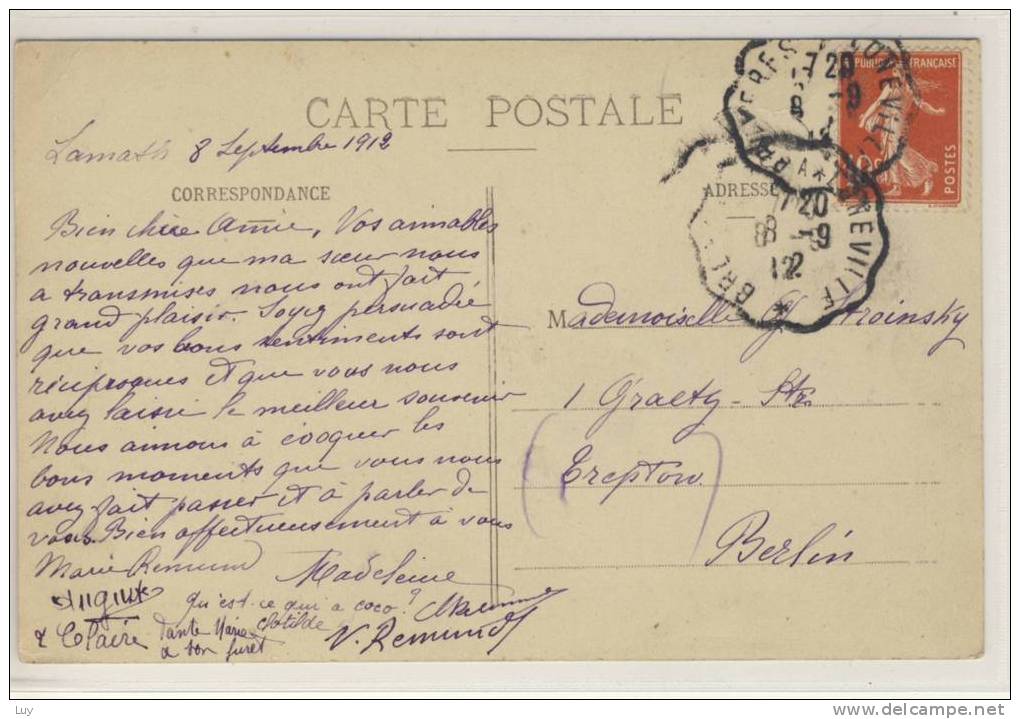 CARTE POSTALE
Lamath 8 Septembre 1912
CORRESPONDANCE
Bien chère Annie, Vos aimables
nouvelles que ma sœur nous
a transmises nous ont fait
grand plaisir. Soyez persuadée
que vos bons sentiments sont
réciproques et que vous nous
avez laissé le meilleur souvenir
Nous aimons à évoquer les
bons moments que vous nous
avez fait passer et à parler de
vous. Bien affectueusement à vous
Marie Remund Madeleine
August
qu'est-ce qui a coco?
& Claire tante Marie Clotilde
a bon furet V. Remund
ADRESSE
REPUBLIQUE FRANÇAISE
10c
POSTES
7 20
8 -9
12
LUNEVILLE
BRUYERES A LUNEVILLE
7 20
8 -9
12
Mademoiselle Stroinsky
1 Graetz-Str.
Treptow
Berlin
Luy
www.delcampe.net